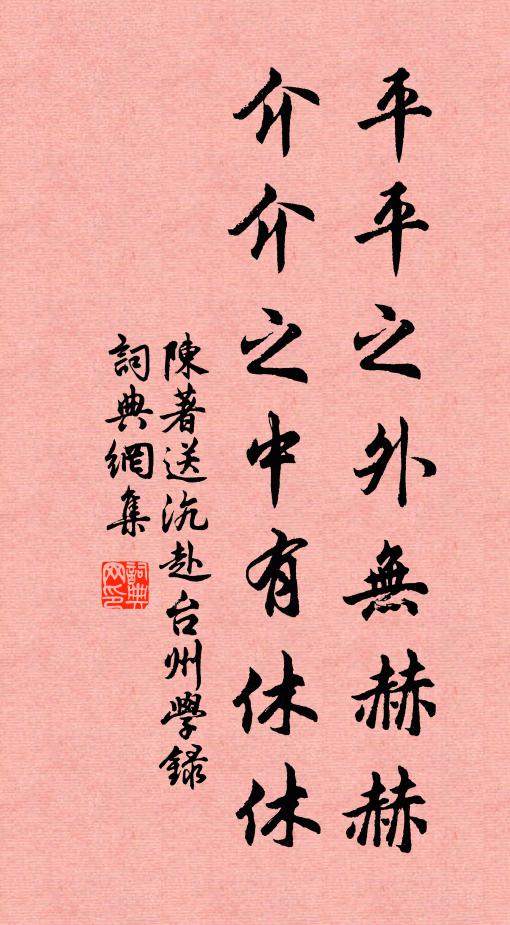 平平之外無赫赫
介介之中有休休
陳著送沇赴台州學錄
詞典網集
詞典網印